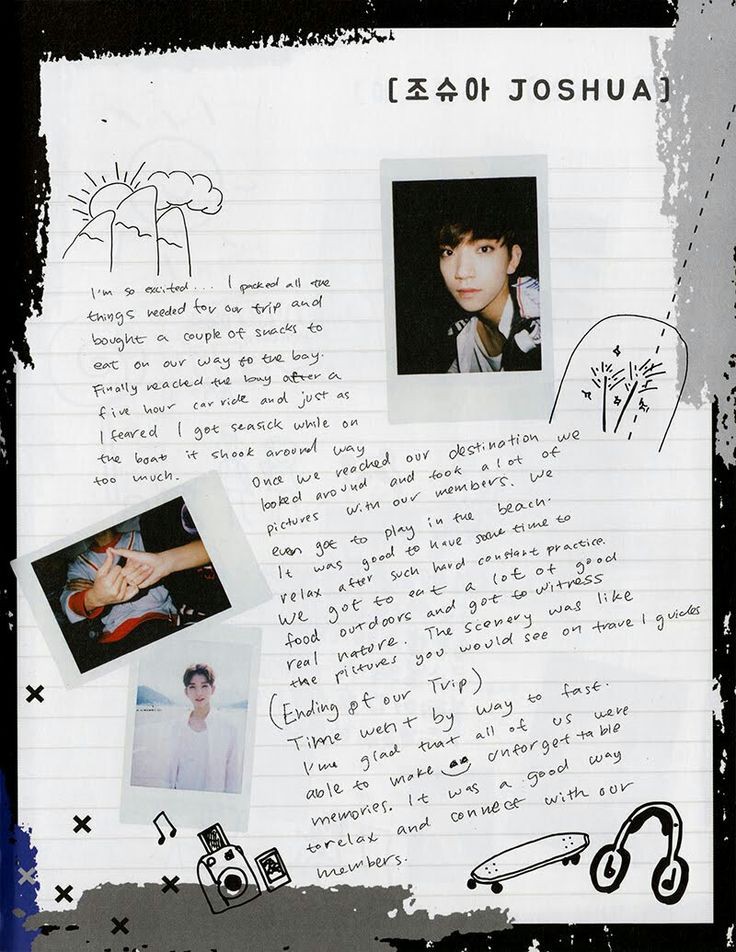 [조슈아 JOSHUA]
I'm so excited... I packed all the
things needed for our trip and
bought a couple of snacks to
eat on our way to the bay.
Finally reached the bay after a
five hour car ride and just as
I feared I got seasick while on
the boat it shook around way
too much.
Once we reached our destination we
looked around and took a lot of
pictures with our members. We
even got to play in the beach.
It was good to have some time to
relax after such hard constant practice.
We got to eat a lot of good
food outdoors and got to witness
real nature. The scenery was like
the pictures you would see on travel guides
(Ending of our Trip)
Time went by way to fast.
I'me glad that all of us were
able to make unforgettable
memories. It was a good way
to relax and connect with our
members.